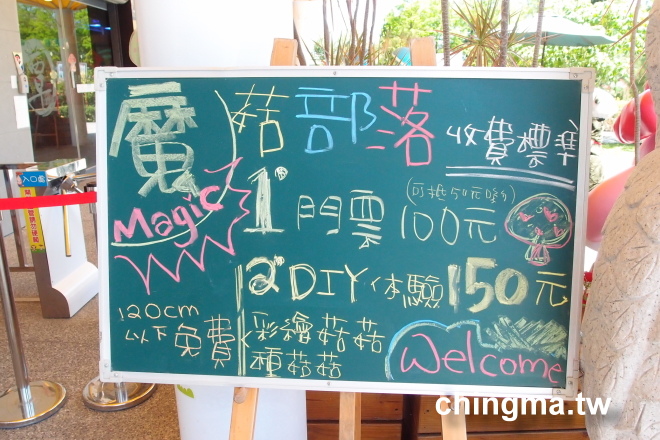 魔菇部落 收費標準
Magic
1. 門雲 100元
(可抵50元
2. DIY.体驗 150元
120cm
以下免費
彩繪菇菇
種菇菇
Welcome
入口處
chingma.tw